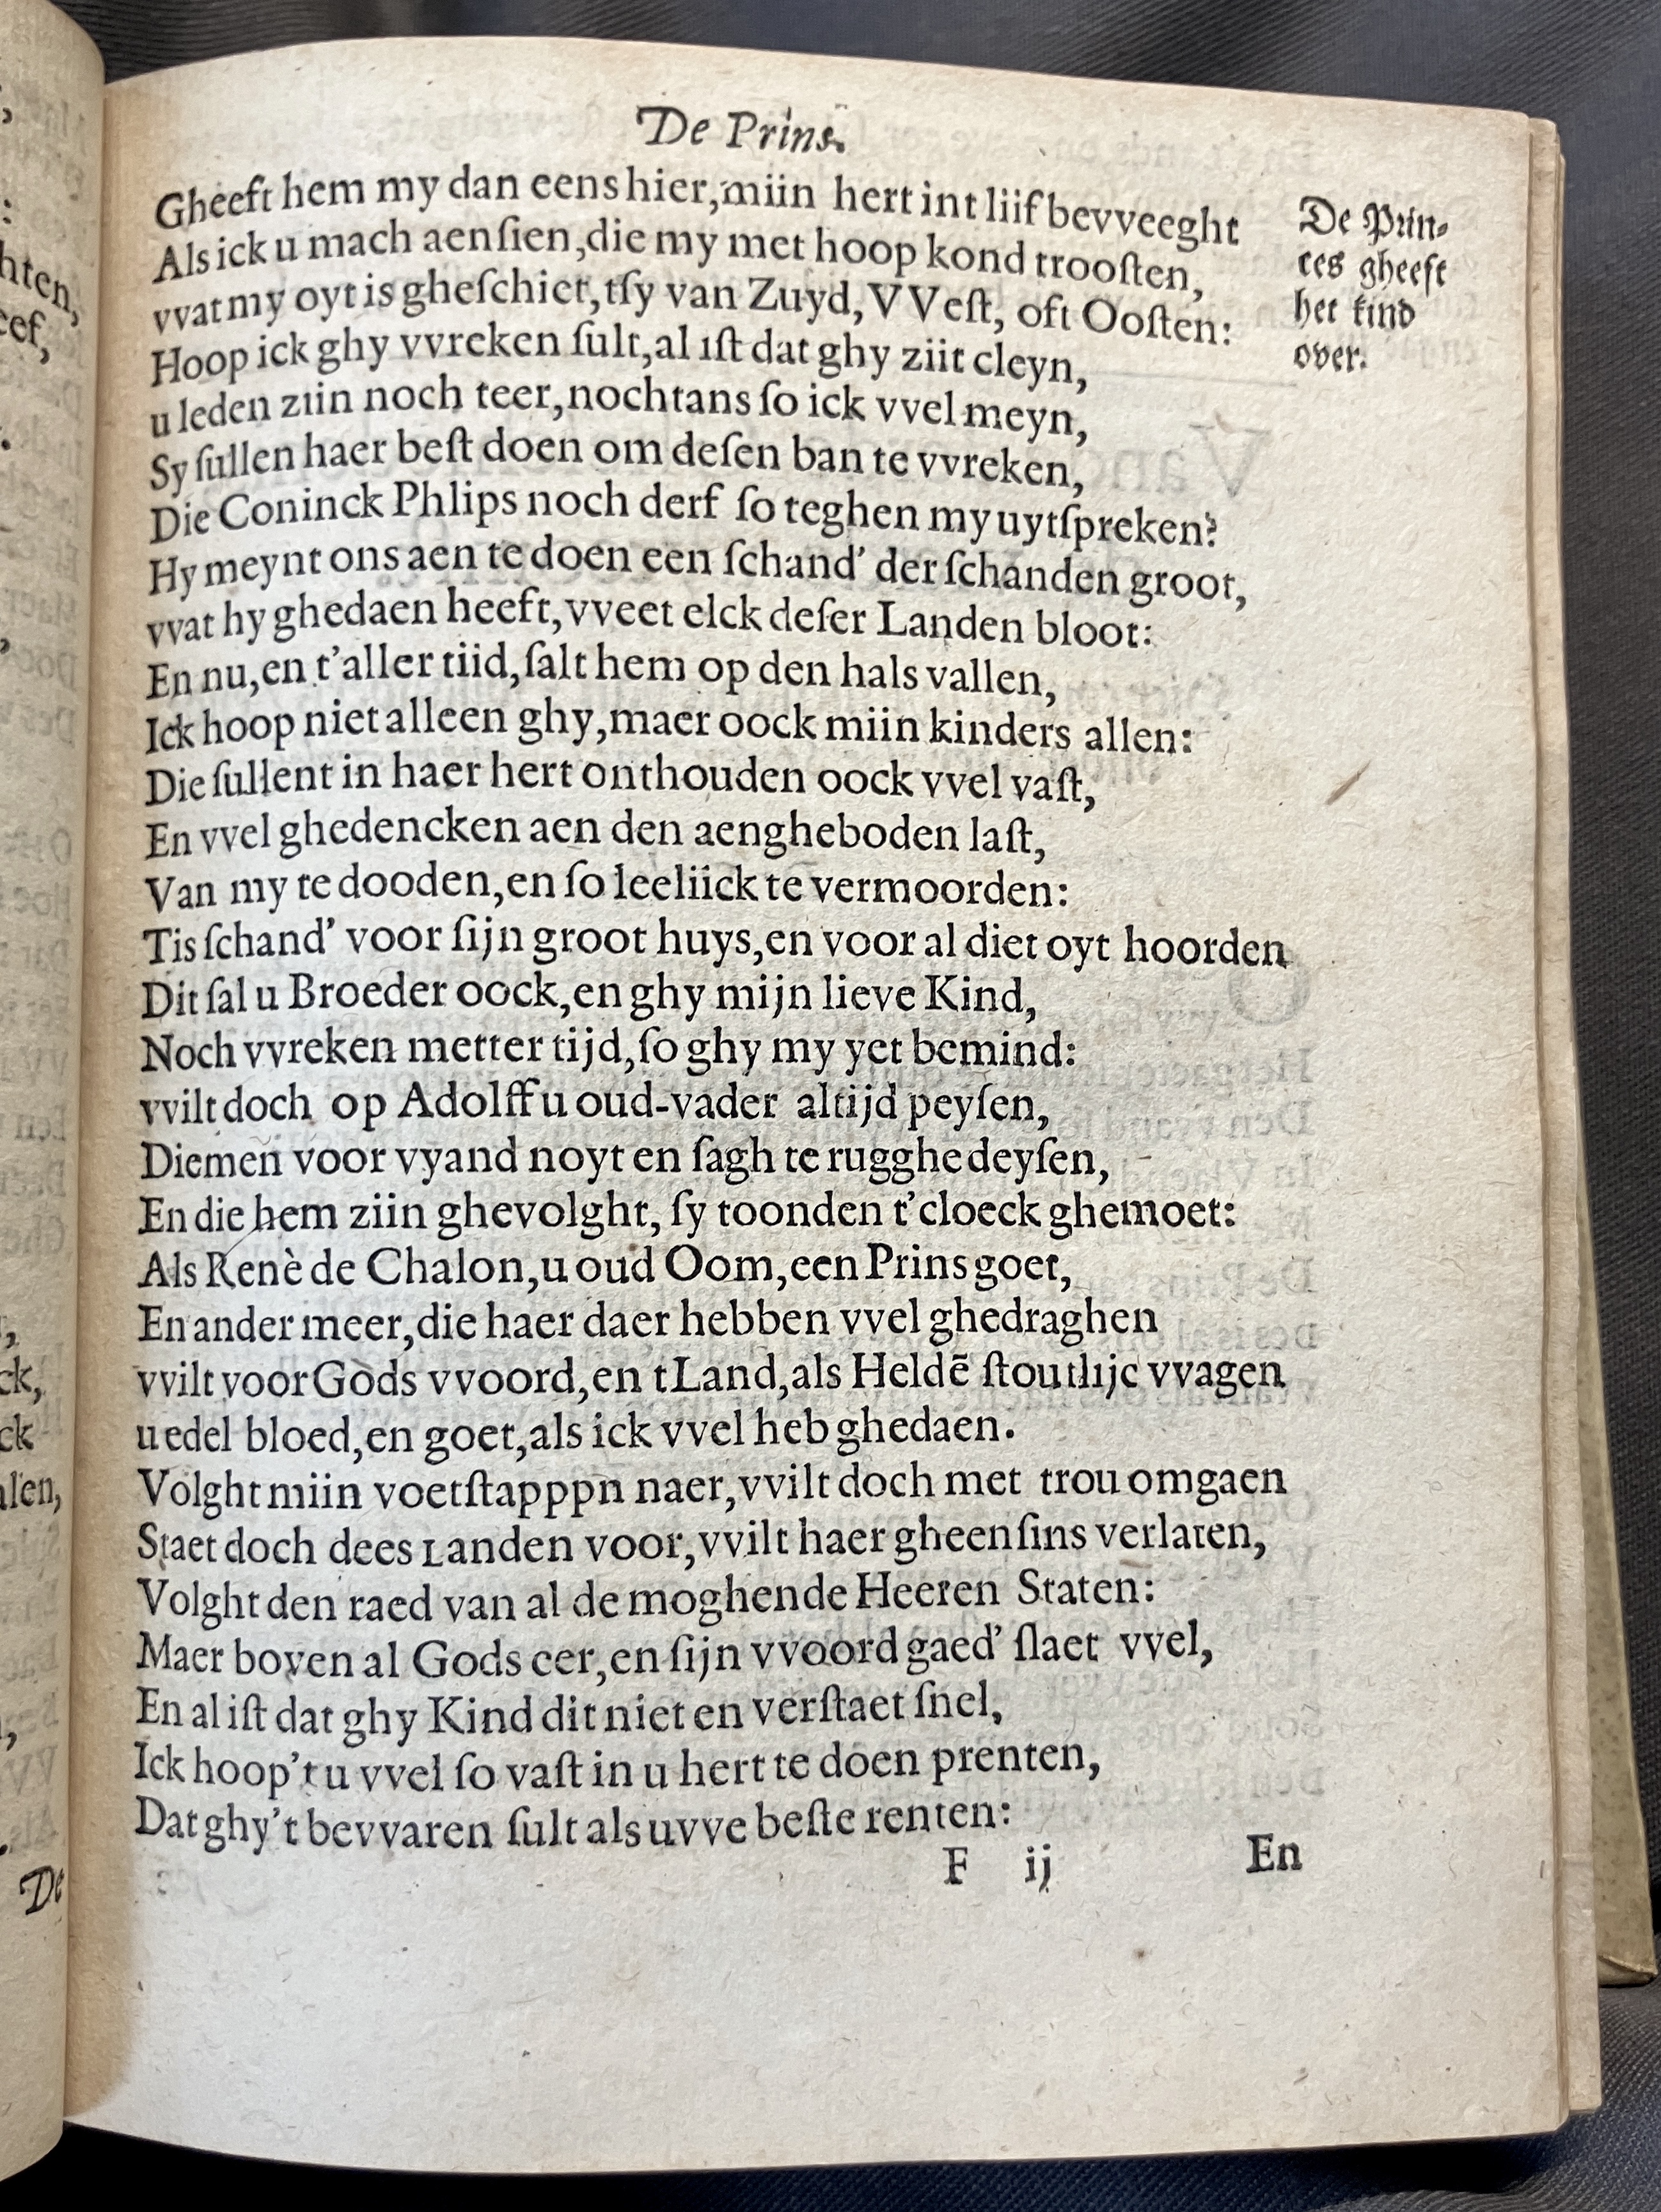 De Prins.
Gheeft hem my dan eens hier, miin hert int liif bevveeght
Als ick u mach aenſien, die my met hoop kond trooſten,
vvat my oyt is gheſchiet, tſy van Zuyd, VVeſt, oft Ooſten:
Hoop ick ghy vvreken ſult, al iſt dat ghy ziit cleyn,
u leden ziin noch teer, nochtans ſo ick vvel meyn,
Sy ſullen haer beſt doen om deſen ban te vvreken,
Die Coninck Phlips noch derf ſo teghen my uytſpreken?
Hy meynt ons aen te doen een ſchand' der ſchanden groot,
vvat hy ghedaen heeft, vveet elck deſer Landen bloot:
En nu, en t'aller tiid, ſalt hem op den hals vallen,
Ick hoop niet alleen ghy, maer oock miin kinders allen:
Die ſullent in haer hert onthouden oock vvel vaſt,
En vvel ghedencken aen den aengheboden laſt,
Van my te dooden, en ſo leeliick te vermoorden:
Tis ſchand' voor ſijn groot huys, en voor al diet oyt hoorden
Dit ſal u Broeder oock, en ghy mijn lieve Kind,
Noch vvreken metter tijd, ſo ghy my yet bemind:
vvilt doch op Adolff u oud-vader altijd peyſen,
Diemen voor vyand noyt en ſagh te rugghe deyſen,
En die hem ziin ghevolght, ſy toonden t'cloeck ghemoet:
Als Renè de Chalon, u oud Oom, een Prins goet,
En ander meer, die haer daer hebben vvel ghedraghen
vvilt voor Gods vvoord, en tLand, als Heldē ſtoutlijc vvagen
u edel bloed, en goet, als ick vvel heb ghedaen.
Volght miin voetſtapppn naer, vvilt doch met trou omgaen
Staet doch dees Landen voor, vvilt haer gheenſins verlaten,
Volght den raed van al de moghende Heeren Staten:
Maer boven al Gods eer, en ſijn vvoord gaed' ſlaet vvel,
En al iſt dat ghy Kind dit niet en verſtaet ſnel,
Ick hoop't u vvel ſo vaſt in u hert te doen prenten,
Dat ghy't bevvaren ſult als uvve beſte renten:
F ij En
De Prin-
ces gheeft
het kind
over.
hten,
ck,
ck
De